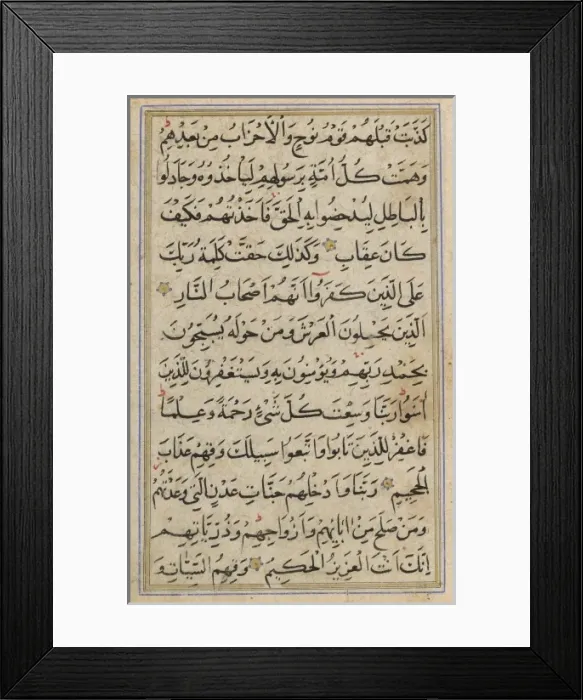 كَذَّبَتْ قَبْلَهُمْ قَوْمُ نُوحٍ وَالْأَحْزَابُ مِنْ بَعْدِهِمْ
وَهَمَّتْ كُلُّ أُمَّةٍ بِرَسُولِهِمْ لِيَأْخُذُوهُ وَجَادَلُوا
بِالْبَاطِلِ لِيُدْحِضُوا بِهِ الْحَقَّ فَأَخَذْتُهُمْ فَكَيْفَ
كَانَ عِقَابِ وَكَذَلِكَ حَقَّتْ كَلِمَةُ رَبِّكَ
عَلَى الَّذِينَ كَفَرُوا أَنَّهُمْ أَصْحَابُ النَّارِ
الَّذِينَ يَحْمِلُونَ الْعَرْشَ وَمَنْ حَوْلَهُ يُسَبِّحُونَ
بِحَمْدِ رَبِّهِمْ وَيُؤْمِنُونَ بِهِ وَيَسْتَغْفِرُونَ لِلَّذِينَ
آمَنُوا رَبَّنَا وَسِعْتَ كُلَّ شَيْءٍ رَحْمَةً وَعِلْمًا
فَاغْفِرْ لِلَّذِينَ تَابُوا وَاتَّبَعُوا سَبِيلَكَ وَقِهِمْ عَذَابَ
الْجَحِيمِ رَبَّنَا وَأَدْخِلْهُمْ جَنَّاتِ عَدْنٍ الَّتِي وَعَدْتَهُمْ
وَمَنْ صَلَحَ مِنْ آبَائِهِمْ وَأَزْوَاجِهِمْ وَذُرِّيَّاتِهِمْ
إِنَّكَ أَنْتَ الْعَزِيزُ الْحَكِيمُ وَقِهِمُ السَّيِّئَاتِ وَ